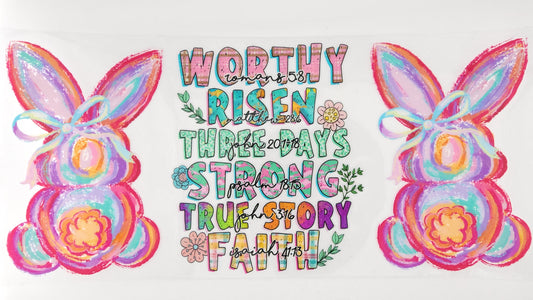 WORTHY
romans 5:8
RISEN
matthew 28:6
THREE DAYS
john 20:1-18
STRONG
psalm 18:15
TRUE STORY
john 3:16
FAITH
isaiah 41:13